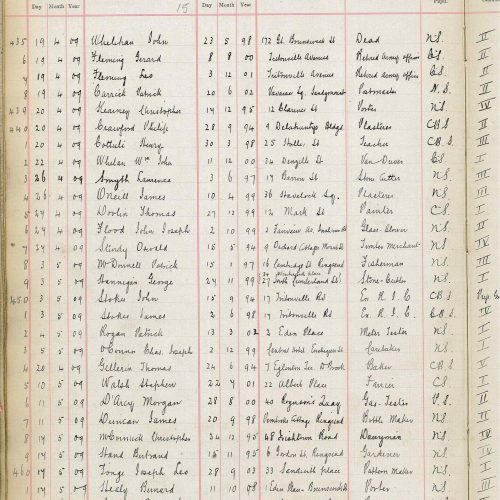 Day Month Year 15 Day Month Year
435 19 4 09 Whelehan John 23 5 98 172 Gt. Brunswick St Dead N.S. II
6 19 4 09 Fleming Gerard 8 8 00 Tritonville Avenue Retired Army officer C.S. II
7 19 4 09 Fleming Leo 3 12 01 Tritonville Avenue Retired Army officer C.S. II
8 19 4 09 Carrick Patrick 20 6 02 Sandymount Postmaster N.S. II
439 20 4 09 Kearney Christopher 14 12 95 12 Clarence St Porter N.S. IV
440 20 4 09 Crawford Philip 28 9 94 9 Delahuntys Bldgs Plasterer C.B.S. II
1 20 4 09 Henry 30 3 98 25 Holles St Teacher C.B.S. III
2 22 4 09 Whelan Wm John 11 12 00 34 Denzille St Van Driver C.S. I
3 26 4 09 Smyth Laurence 3 6 97 17 Barrow St Stone Cutter N.S. IV
4 26 4 09 O'Neill James 10 4 99 36 Stavelock Sq. Plasterer N.S. III
5 26 4 09 Doolin Thomas 27 12 99 12 Mark St Painter C.S. I
6 26 4 09 Flood John Joseph 2 10 99 Glass Blower N.S. IV
7 26 4 09 Oswald 15 5 94 9 Orchard Cottage Timber Merchant N.S. IV
8 3 5 09 McDonnell Patrick 15 1 97 16 Cambridge St Ringsend Fisherman N.S. III
9 3 5 09 Hannigan George 24 11 99 27 South Cumberland St Stone Cutter N.S. I
450 3 5 09 Stokes John 15 9 94 17 Tritonville Rd Ex R.I.C C.B.S.
1 3 5 09 Stokes James 2 6 98 17 Tritonville Rd Ex. R.I.C. C.B.S. IV
2 4 5 09 Rogan Patrick 13 3 02 2 Eden Place Meter Tester N.S. I
3 5 5 09 O'Connor Chas. Joseph 2 12 99 Central Hotel Exchequer St Caretaker N.S. I
4 28 4 09 Thomas 24 6 94 7 Eglinton Ter. D'Brook Baker C.B.S. I
5 10 5 09 Walsh Stephen 22 4 01 22 Albert Place Farrier C.S. I
6 11 5 09 D'Arcy Morgan 28 8 00 40 Rogerson's Quay Gas-Tester P.S. II
7 11 5 09 Duncan James 20 9 98 Pembroke Cottage Ringsend Bottle Maker N.S. I
8 14 5 09 McCormick Christopher 24 12 95 48 Irishtown Road Dairyman N.S. II
9 14 5 09 Hand Bertrand 15 11 95 6 Gordon St. Ringsend Gardener N.S. II
460 14 5 09 Tonge Joseph Leo 28 9 03 33 Sandwith Place Pattern Maker N.S. I
14 5 09 Healy Bernard 11 10 08 1 Eden Place Porter N.S.